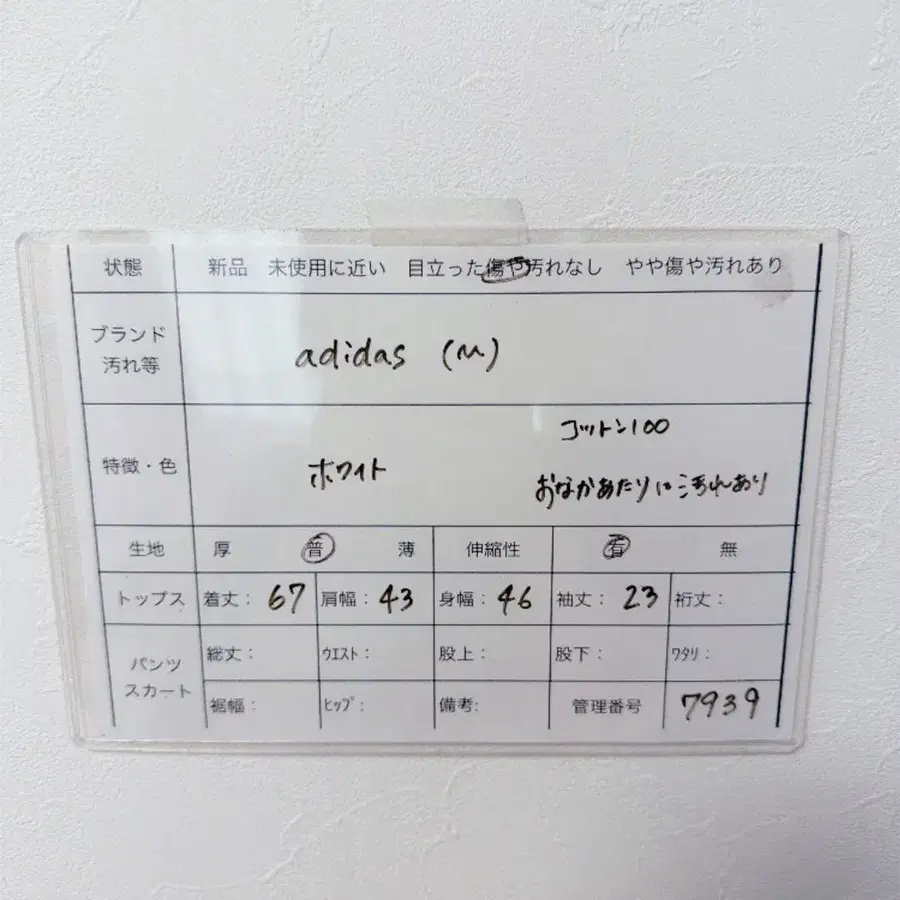 状態 新品 未使用に近い 目立った傷や汚れなし やや傷や汚れあり
ブランド
汚れ等
adidas (M)
特徴・色
ホワイト
コットン100
おなかあたりに汚れあり
生地 厚 普 薄 伸縮性 有 無
トップス 着丈: 67 肩幅: 43 身幅: 46 袖丈: 23 裄丈:
パンツ
スカート
総丈: ウエスト: 股上: 股下: ワタリ:
裾幅: ヒップ: 備考: 管理番号 7939